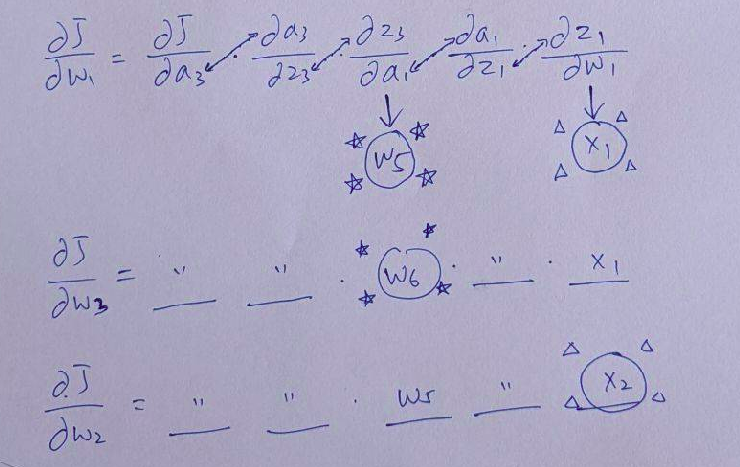 ∂J/∂w₁ = ∂J/∂a₃ · ∂a₃/∂z₃ · ∂z₃/∂a₁ · ∂a₁/∂z₁ · ∂z₁/∂w₁
w5 x₁
∂J/∂w₃ = " " · w6 · " · x₁
∂J/∂w₂ = " " · w5 " x₂